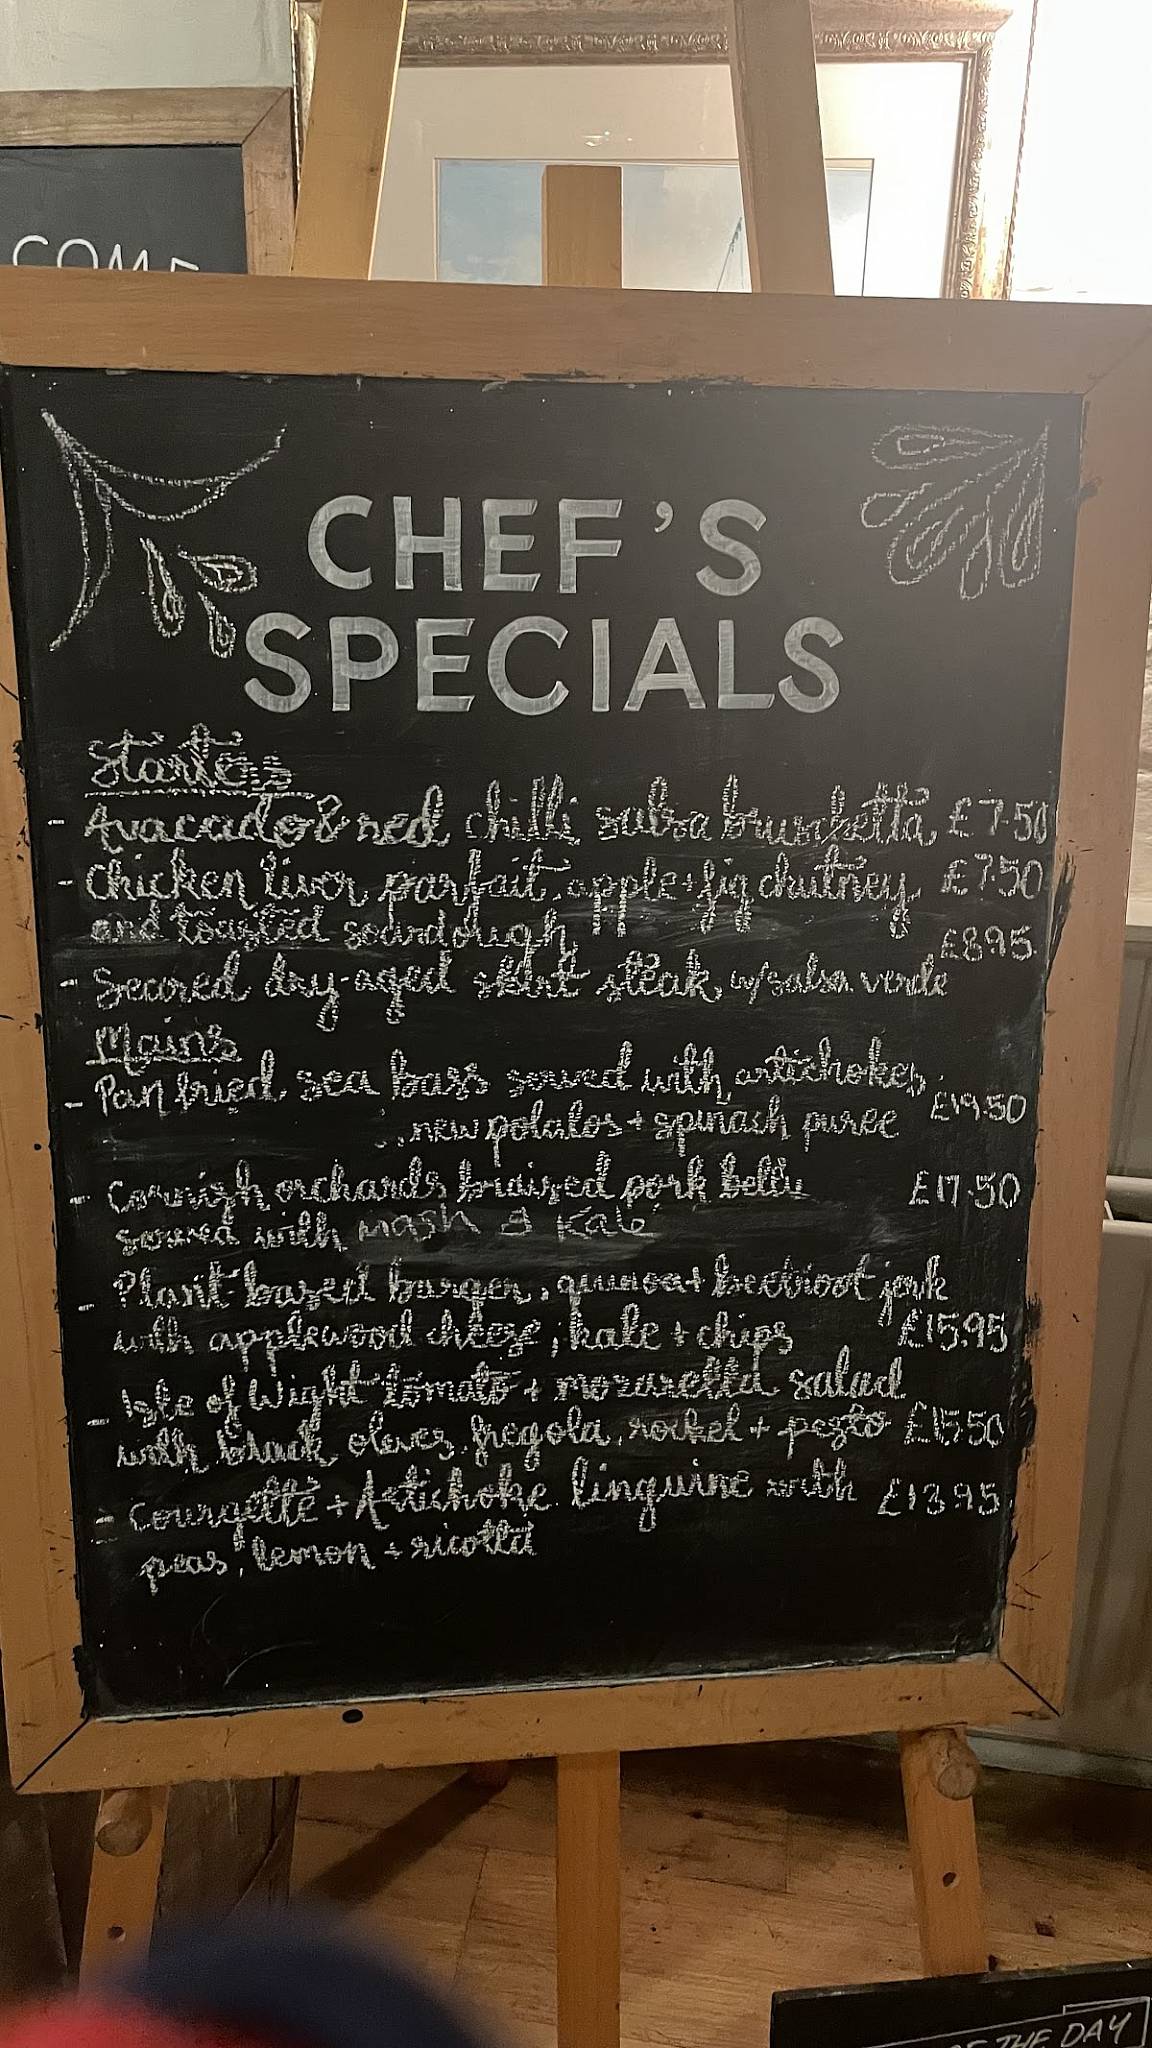 COME
CHEF'S
SPECIALS
Starters
- Avacado & red chilli salsa bruschetta £7.50
- Chicken liver parfait, apple + fig chutney £7.50
and toasted sourdough
£8.95
- Seared dry-aged skirt steak w/salsa verde
Mains
- Pan fried sea bass served with artichokes,
£19.50
new potatos + spinach puree
- Cornish orchards braised pork belly £17.50
served with mash & Kale
- Plant based burger, quinoa + beetroot
with applewood cheese, kale + chips £15.95
- Isle of Wight tomato + mozarella salad
with black olives, fregola, rocket + pesto £15.50
- Courgette + Artichoke linguine with £13.95
peas, lemon + ricotta
OF THE DAY